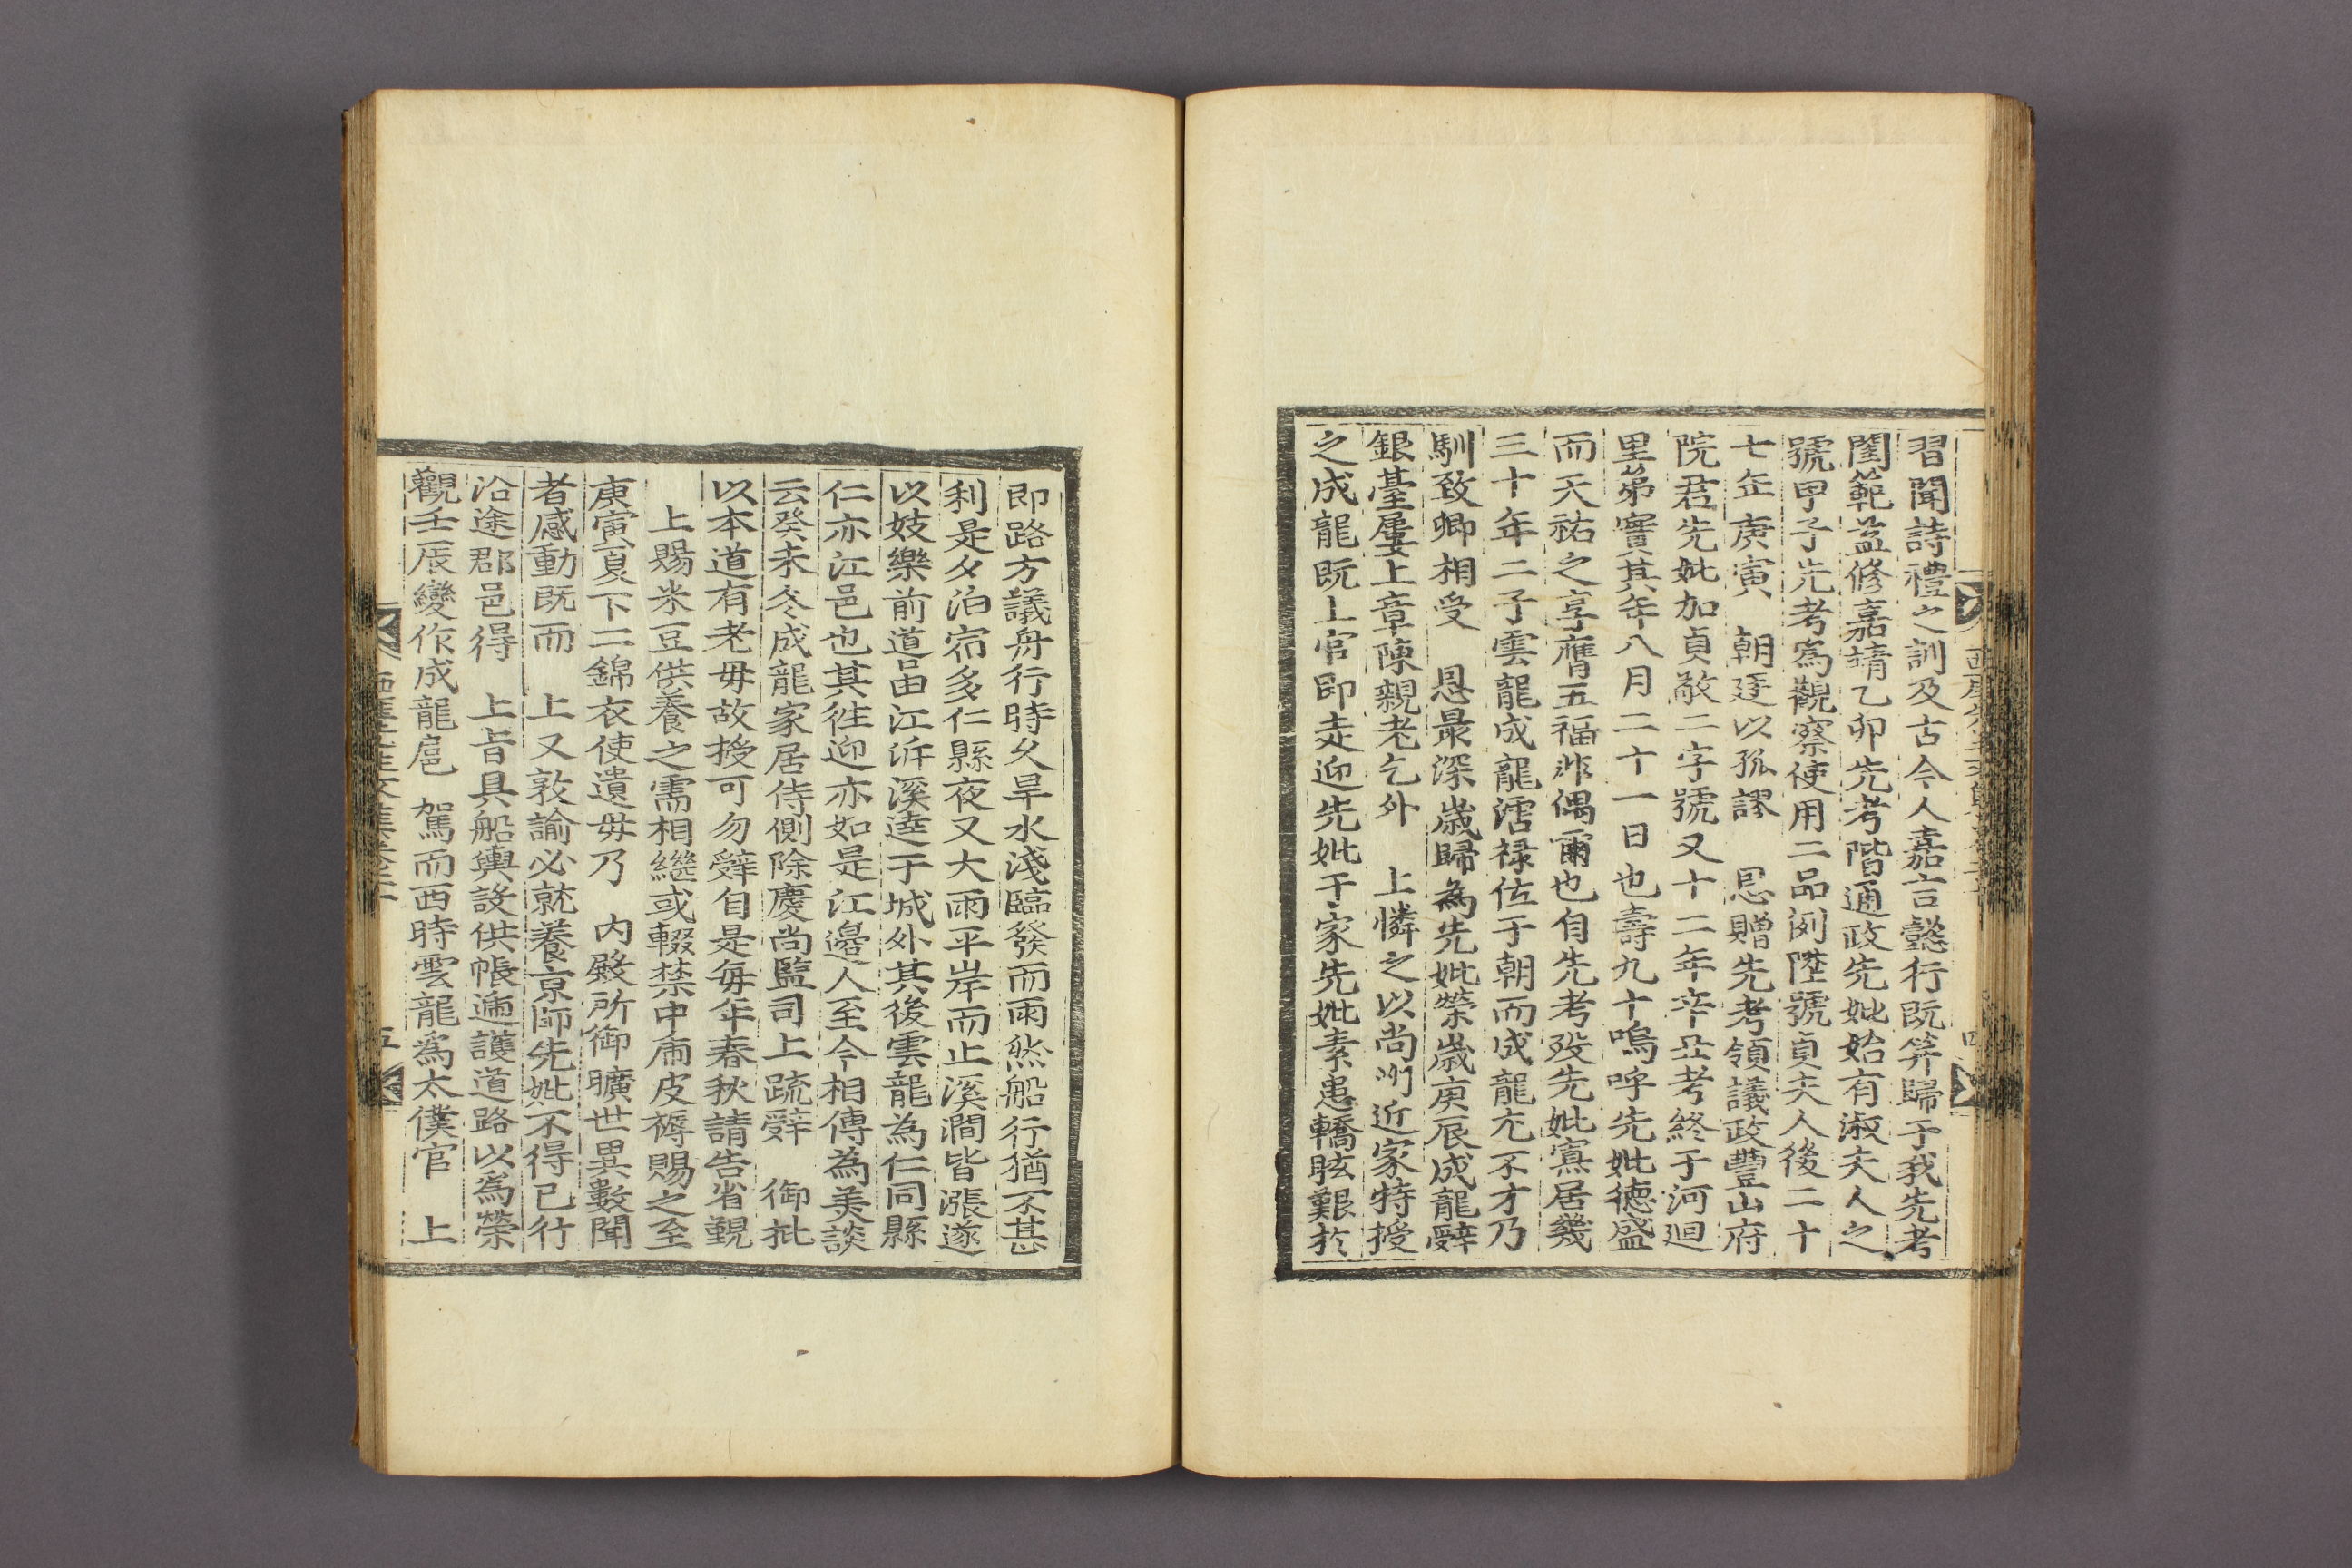 習聞詩禮之訓及古今人嘉言懿行既笄歸于我先考
閨範益修嘉靖乙卯先考階通政先妣始有淑夫人之
號甲子先考爲觀察使用二品例陞號貞夫人後二十
七年庚寅 朝廷以孤謬 恩贈先考領議政豐山府
院君先妣加貞敬二字號又十二年辛丑考終于河迴
里第實其年八月二十一日也壽九十嗚呼先妣德盛
而天祐之享膺五福非偶爾也自先考歿先妣寡居幾
三十年二子雲龍成龍霑祿位于朝而成龍尤不才乃
馴致卿相受 恩最深歲歸爲先妣榮歲庚辰成龍辭
銀臺屢上章陳親老乞外 上憐之以尚州近家特授
之成龍既上官卽走迎先妣于家先妣素患轎眩艱於
西厓先生文集卷之二十 四
即路方議舟行時久旱水淺臨發而雨然船行猶不甚
利是夕泊宿多仁縣夜又大雨平岸而止溪澗皆漲遂
以妓樂前道由江泝溪達于城外其後雲龍為仁同縣
仁亦江邑也其徃迎亦如是江邊人至今相傳為美談
云癸未冬成龍家居侍側除慶尚監司上疏辭 御批
以本道有老母故授可勿辭自是每年春秋請告省覲
上賜米豆供養之需相繼或輟禁中虎皮褥賜之至
庚寅夏下二錦衣使遺母乃 內殿所御曠世異數聞
者感動既而 上又敦諭必就養京師先妣不得已行
沿途郡邑得 上旨具船輿設供帳遞護道路以爲榮
觀壬辰變作成龍扈 駕而西時雲龍爲太僕官 上
西厓先生文集卷之二十 五